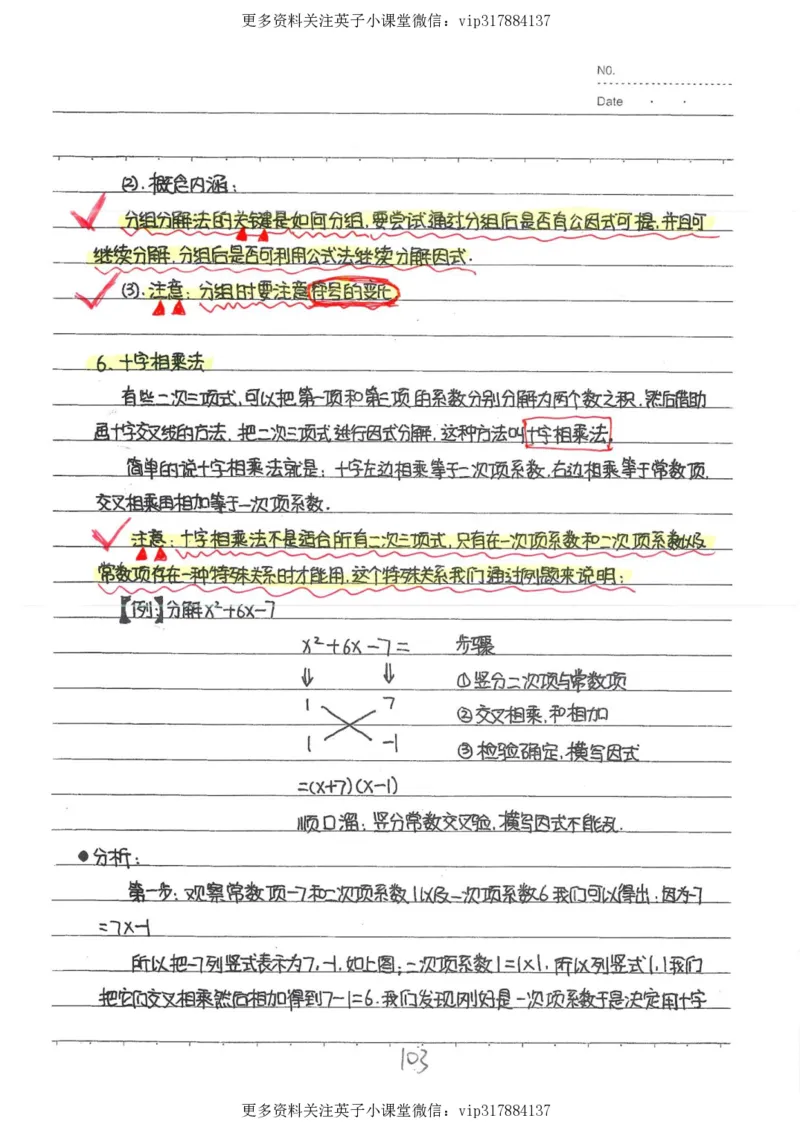 更多资料关注英子小课堂微信：vip317884137
N0.
Date · ·
(2).概念内涵：
分组分解法的关键是如何分组,要尝试通过分组后是否有公因式可提,并且可
继续分解,分组后是否可利用公式法继续分解因式.
(3).注意：分组时要注意符号的变化
6、十字相乘法
有些二次三项式,可以把第一项和第三项的系数分别分解为两个数之积.然后借助
画十字交叉线的方法,把二次三项式进行因式分解,这种方法叫十字相乘法.
简单的说十字相乘法就是：十字左边相乘等于二次项系数.右边相乘等于常数项.
交叉相乘再相加等于一次项系数.
注意：十字相乘法不是适合所有二次三项式,只有在一次项系数和二次项系数以及
常数项存在一种特殊关系时才能用,这个特殊关系我们通过例题来说明：
【例】分解x²+6x-7
x²+6x-7= 步骤
⇓ ⇓ ①竖分二次项与常数项
1 7
②交叉相乘,和相加
1 -1
③检验确定,横写因式
=(x+7)(x-1)
顺口溜：竖分常数交叉验,横写因式不能乱.
●分析：
第一步：观察常数项-7和二次项系数1以及一次项系数6我们可以得出：因为-7
=7×-1
所以把-7列竖式表示为7,-1,如上图;二次项系数1=1×1,所以列竖式1,1我们
把它们交叉相乘然后相加得到7-1=6.我们发现刚好是一次项系数于是决定用十字
103
更多资料关注英子小课堂微信：vip317884137